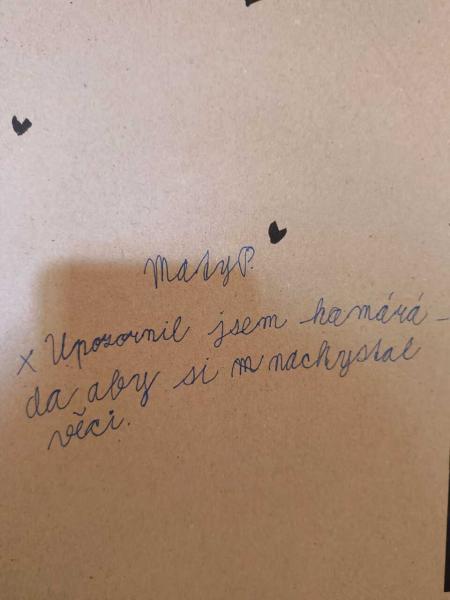 Maty P.
x Upozornil jsem kamárá-
da aby si m nachystal
věci.